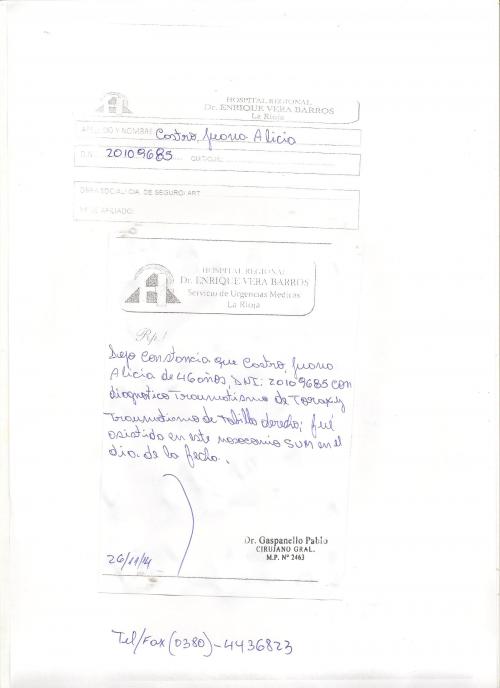 HOSPITAL REGIONAL
Dr. ENRIQUE VERA BARROS
La Rioja
APELLIDO Y NOMBRE: Castro, Juana Alicia
D.N.I. 20109685
OBRA SOCIAL/CIA. DE SEGURO/ ART
Nº DE AFILIADO:
HOSPITAL REGIONAL
Dr. ENRIQUE VERA BARROS
Servicio de Urgencias Médicas
La Rioja
Rp./
Dejo Constancia que Castro, Juana
Alicia de 46 años DNI: 20109685 con
diagnostico Traumatismo de Torax y
Traumatismo de Tobillo derecho; fué
asistida en este nosocomio SUM en el
dia de la fecha.
Dr. Gaspanello Pablo
CIRUJANO GRAL.
M.P. Nº 2463
26/11/14
Tel/Fax (0380)-4436823